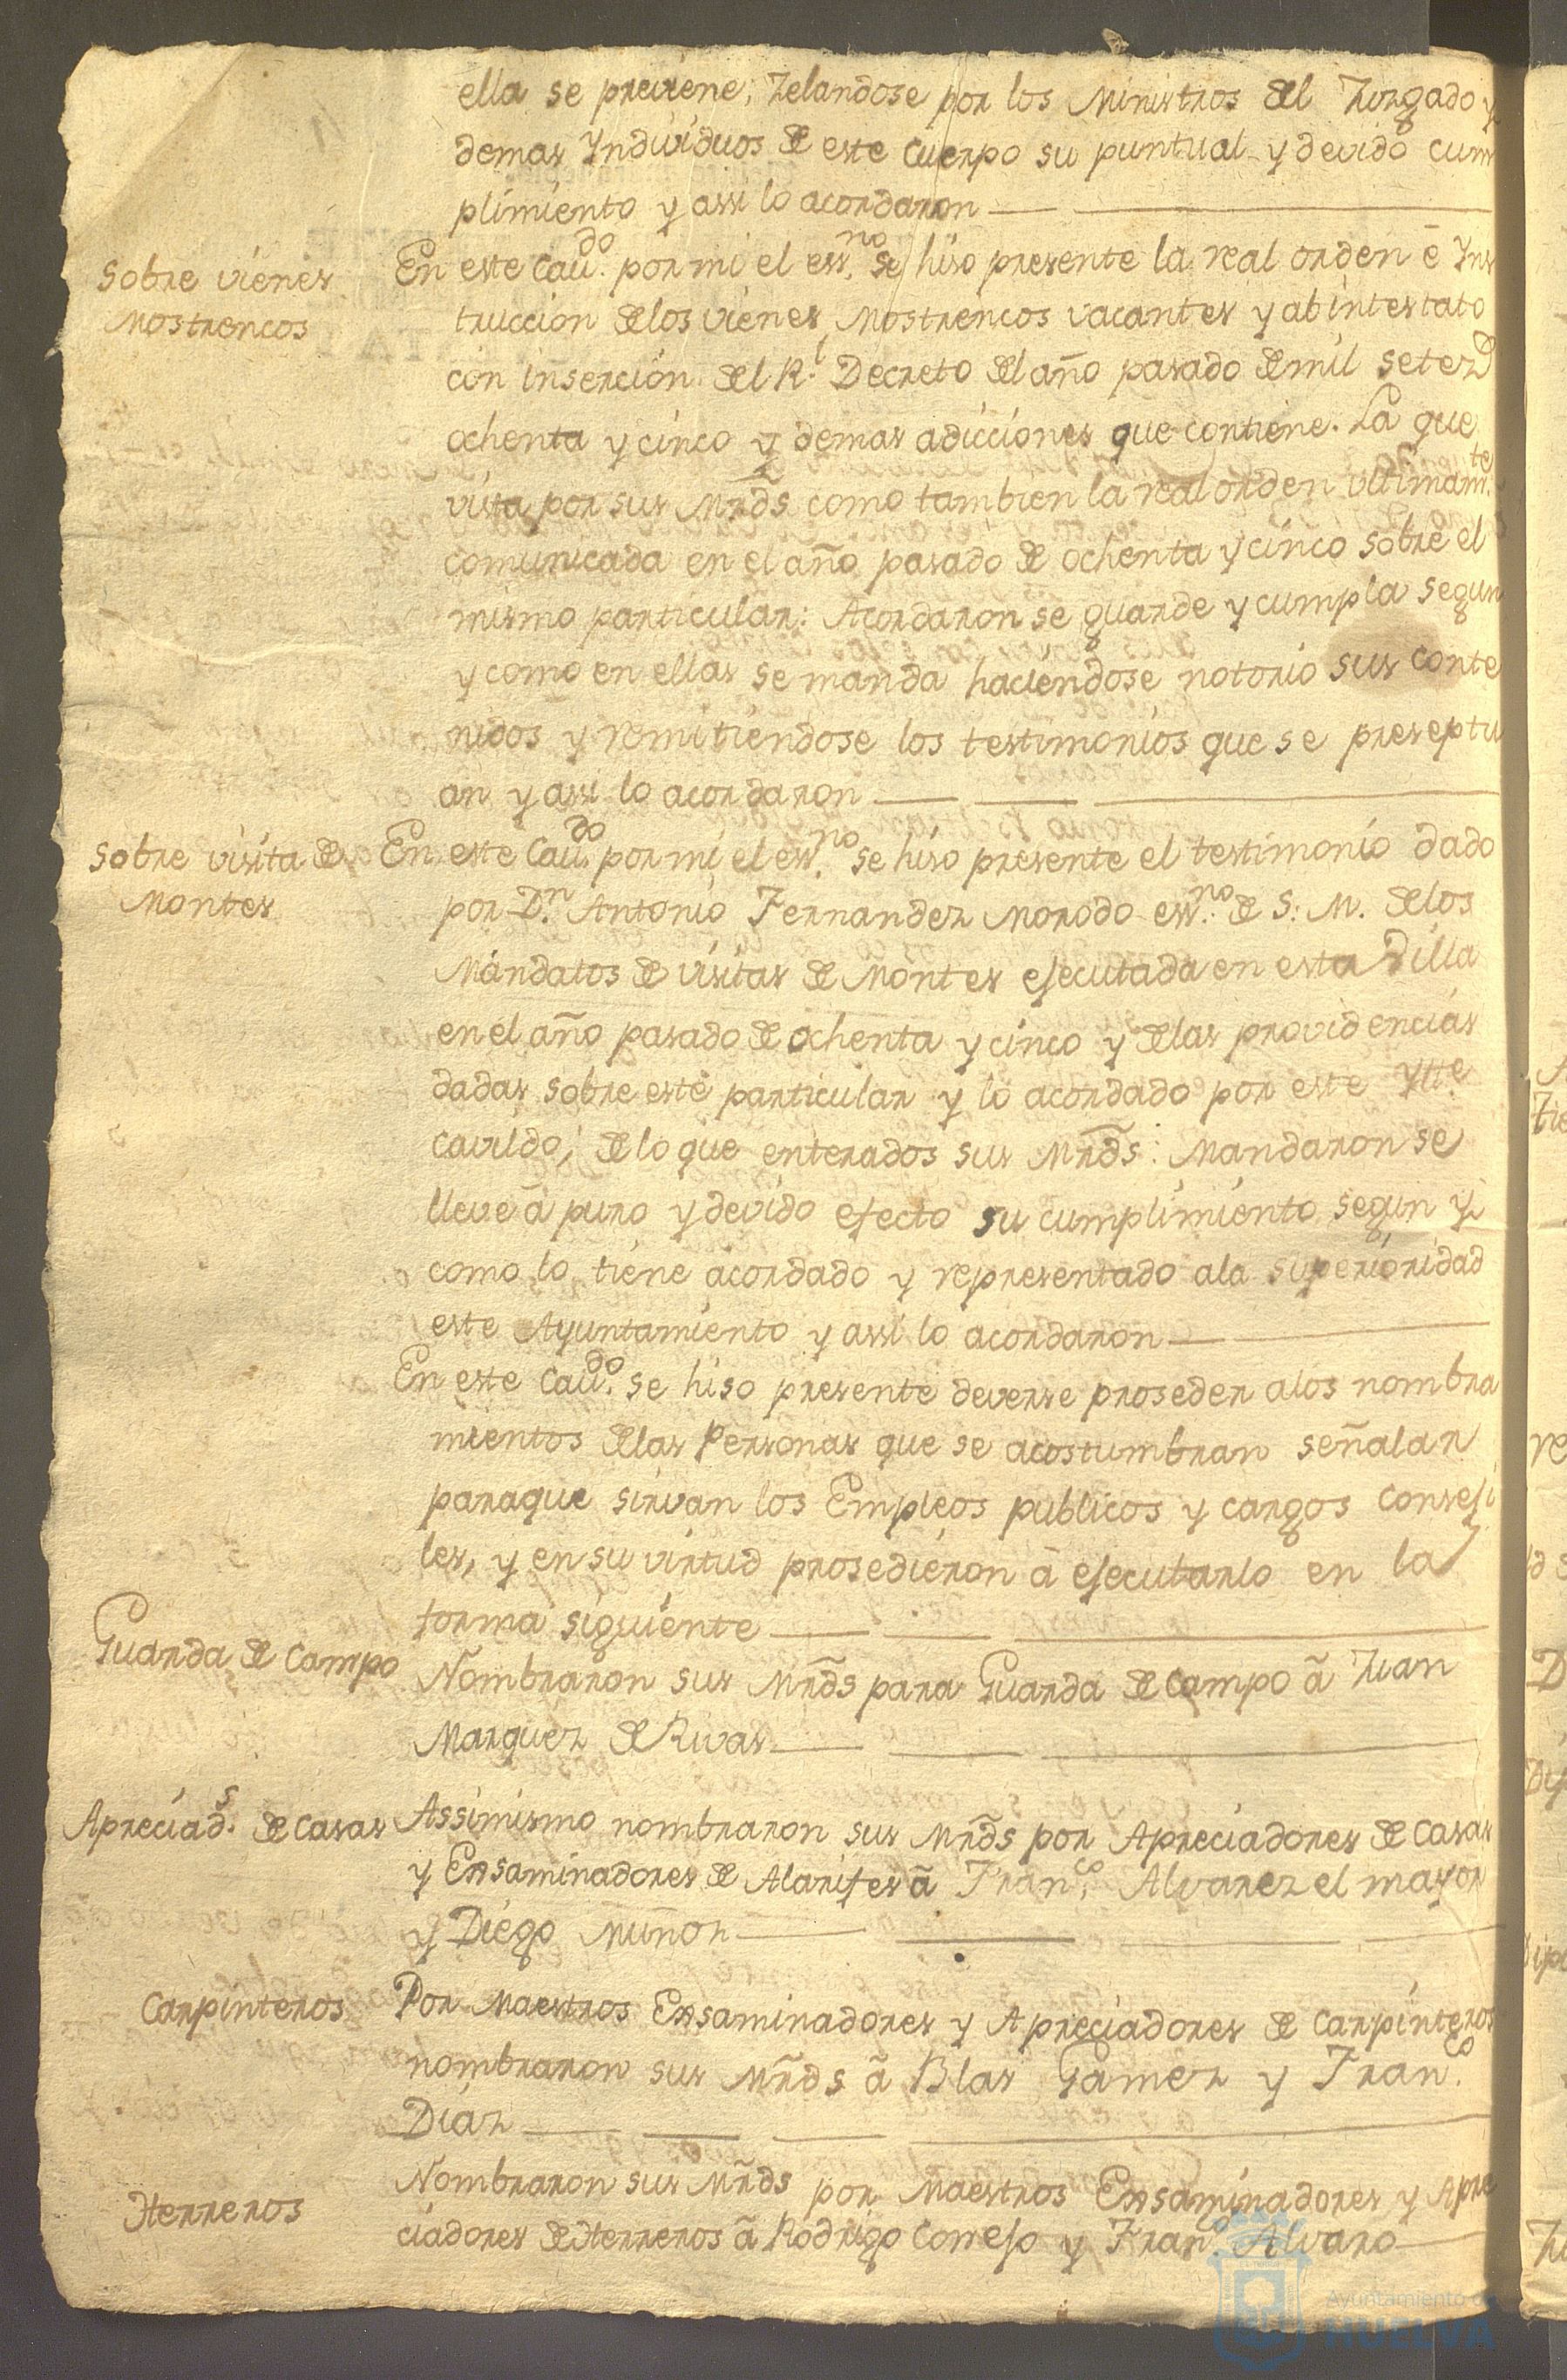 ella se previene, zelandose por los Ministros del Juzgado y
demas Yndividuos de este Cuerpo su puntual y devido cum
plimiento y assi lo acordaron
Sobre vienes
Mostrencos
En este Cau.do por mi el ess.no se hiso presente la real orden é Yns
truccion de los vienes Mostrencos vacantes y abintestato
con insercion del R.l Decreto del año pasado de mil setez.s
ochenta y cinco y demas adicciones que contiene. La que
vista por sus Mrds como tambien la real orden ultimam.te
comunicada en el año pasado de ochenta y cinco sobre el
mismo particular: Acordaron se guarde y cumpla segun
y como en ellas se manda haciendose notorio sus conte
nidos y remitiendose los testimonios que se preseptu
an y assi lo acordaron
Sobre visita de
Montes
En este Cau.do por mi el ess.no se hiso presente el testimonio dado
por D.n Antonio Fernandez Morodo ess.no de S. M. de los
Mandatos de visitas de Montes efecutada en esta Villa
en el año pasado de ochenta y cinco y de las providencias
dadas sobre este particular y lo acordado por este Ylle
cavildo; de lo que enterados sus Mrds: Mandaron se
lleve à puro y devido efecto su cumplimiento segun y
como lo tiene acordado y representado ala superioridad
este Ayuntamiento y assi lo acordaron
En este Cau.do se hiso presente deverse proseder alos nombra
mientos de las Personas que se acostumbran señalar
paraque sirvan los Empleos publicos y cargos conseji
les, y en su virtud prosedieron à efecutarlo en la
forma siguiente
Guarda de Campo
Nombraron sus Mrds para Guarda de Campo à Juan
Marquez de Rivas
Apreciad.s de Casas
Assimismo nombraron sus Mrds por Apreciadores de Casas
y Exsaminadores de Alarifes à Fran.co Alvarez el mayor
y Diego Muñoz
Carpinteros
Por Maestros Exsaminadores y Apreciadores de Carpinteros
nombraron sus Mrds à Blas Gamez y Fran.co
Diaz
Herreros
Nombraron sus Mrds por Maestros Exsaminadores y Apre
ciadores de Herreros à Rodrigo Cornejo y Fran.co Alvaro
Ayuntamiento de
HUELVA